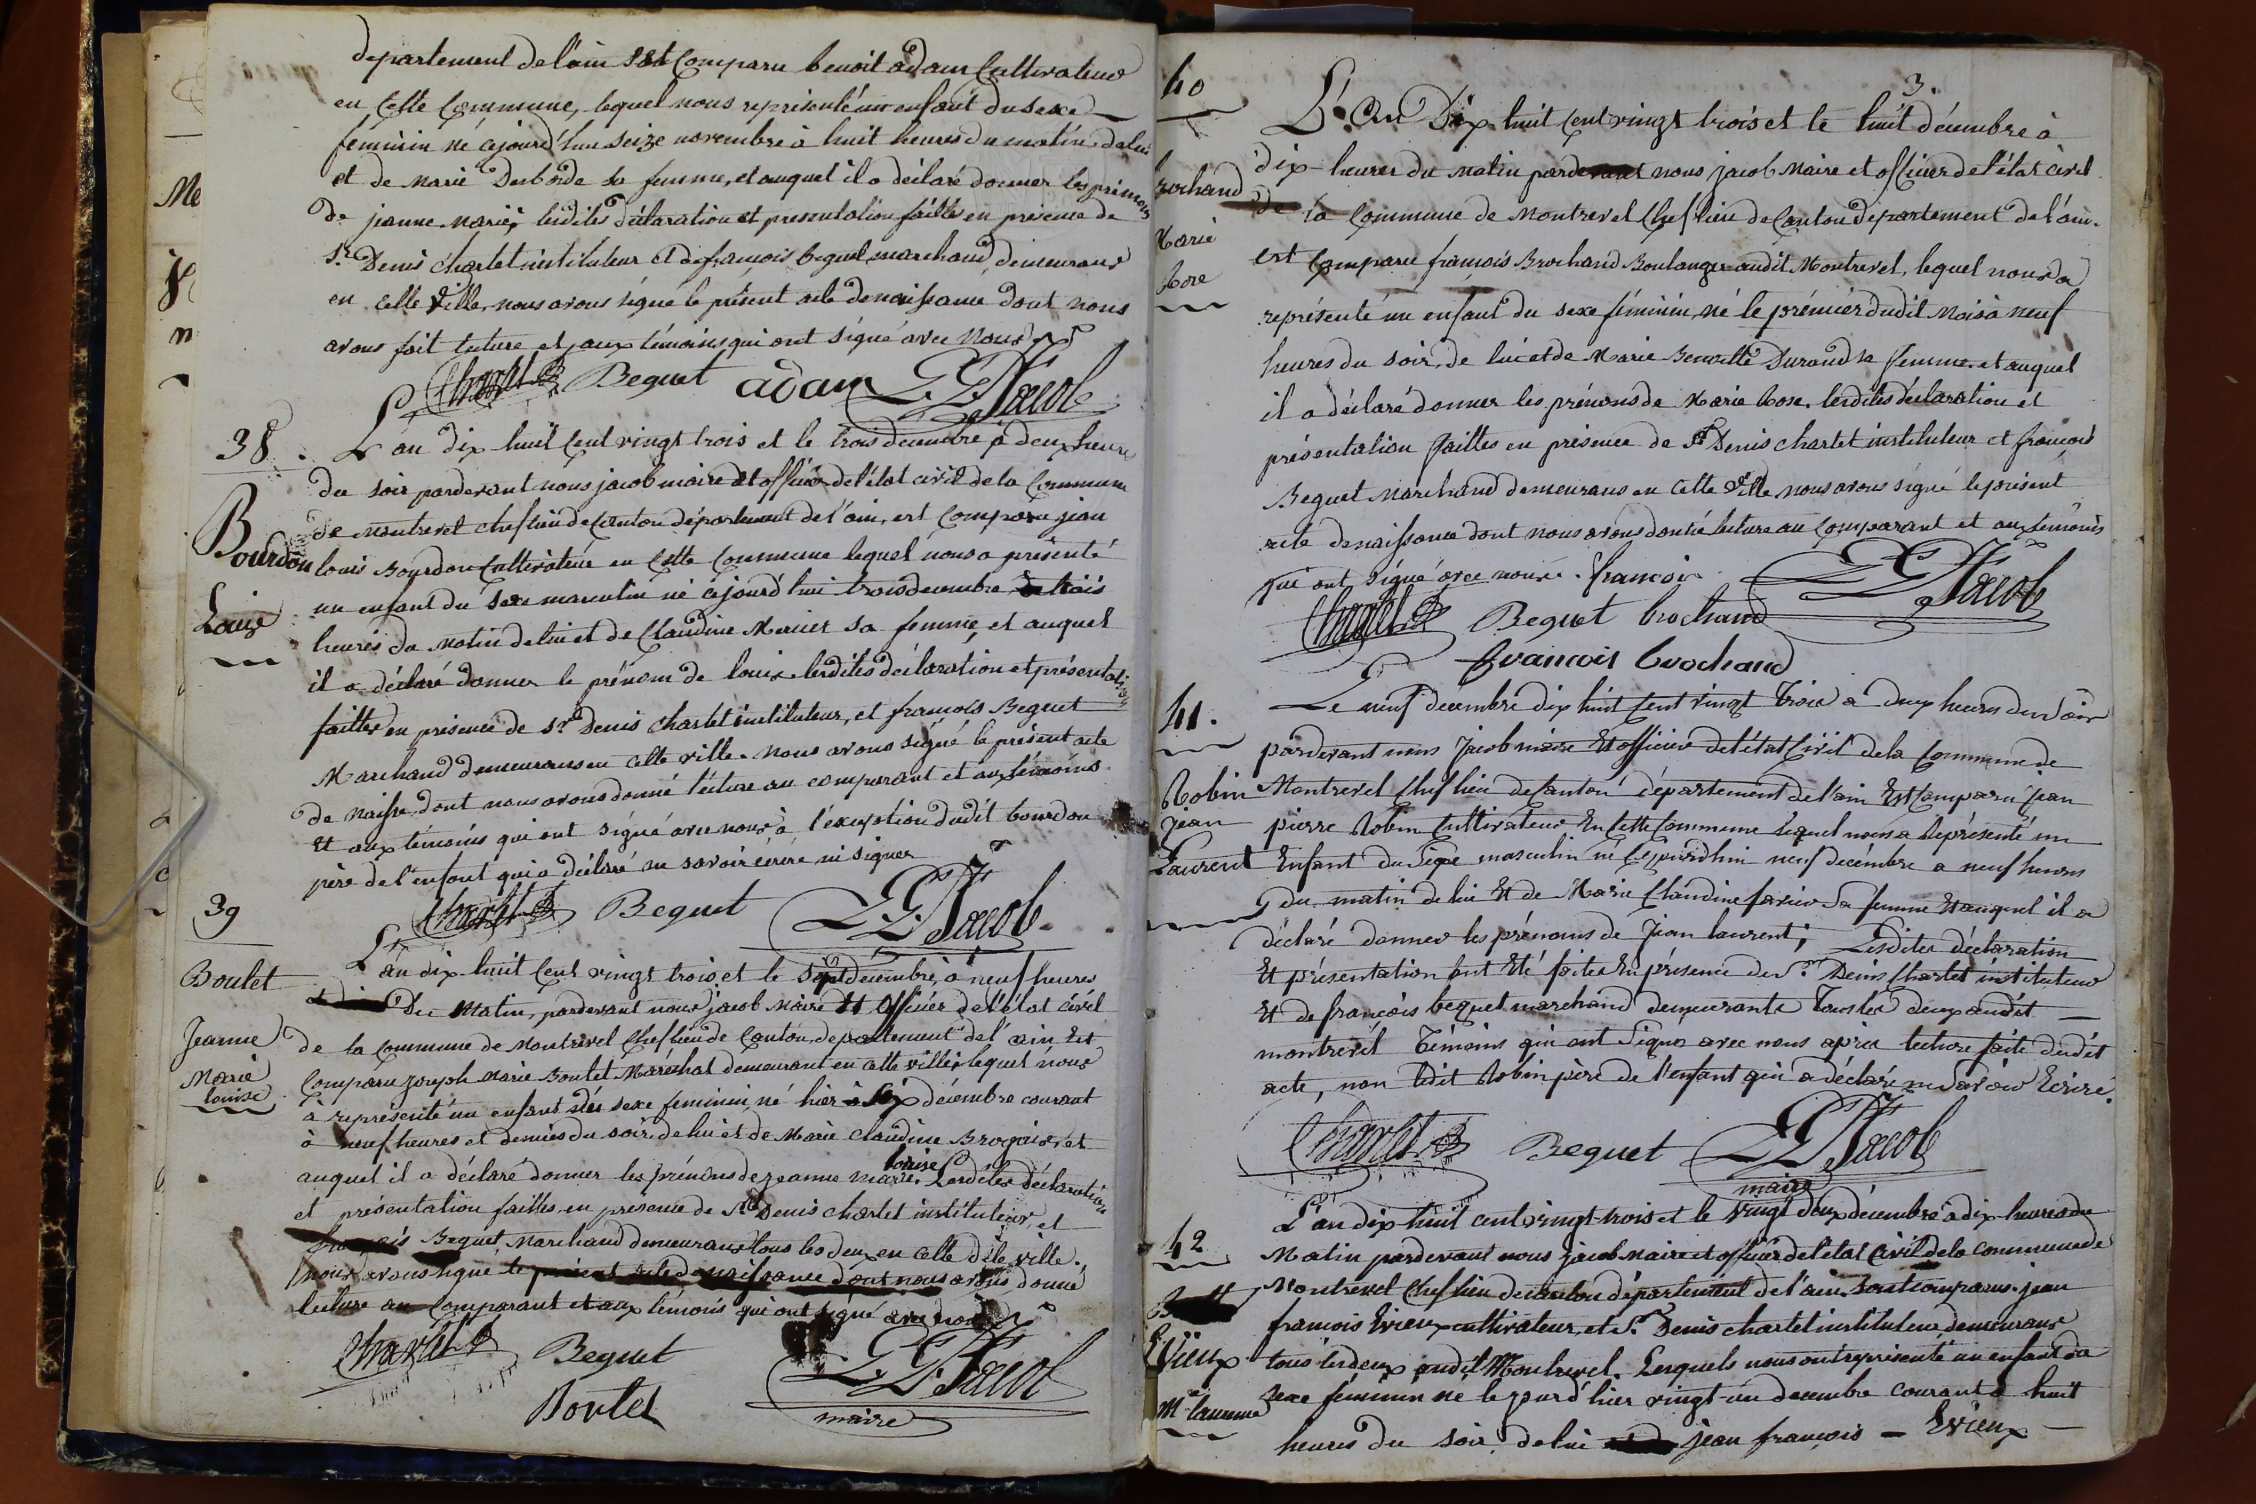 departement de l'ain Est Comparu benoit adam Cultivateur
en Cette Commune, lequel nous représenté un enfant du sexe
féminin né cejourd'hui seize novembre à huit heures du matin, de lui
et de Marie Desborde sa femme, et auquel il a déclaré donner les prénoms
de jeanne Marie, lesdites déclaration et presentation faittes en présence de
Sr. Denis charlet instituteur et de françois beguet marchand, demeurans
en cette Ville, nous avons signé le présent acte de naissance dont nous
avons fait lecture et aux témoins qui ont signé avec nous
Charlet Beguet adam Jacob
38. L'an dix huit Cent vingt trois et le trois decembre à deux heures
du soir pardevant nous jacob maire et officier de l'état civil de la Commune
de Montrevel chef lieu de Canton département de l'ain, est Comparu jean
Bourdon louis Bourdon Cultivateur en Cette Commune lequel nous a présenté
un enfant du sexe masculin né cejourd'hui trois decembre à trois
Louis heures du matin de lui et de Claudine Mercier sa femme, et auquel
il a déclaré donner le prénom de louis. lesdites déclaration et présentation
faittes en présence de Sr. Denis charlet instituteur, et françois Beguet
Marchand demeurans en cette ville. nous avons signé le présent acte
de naisse. dont nous avons donné lecture au comparant et aux témoins
Et aux témoins qui ont signé avec nous à l'exception dudit bourdon
père de l'enfant qui a déclaré ne savoir écrire ni signer
Charlet Beguet Jacob
39 L'an dix huit Cent vingt trois, et le sept décembre, à neuf heures
Boulet Du Matin, pardevant nous jacob Maire et Officier de l'état civil
Jeanne de la Commune de Montrevel Chef lieu de Canton, departement de l'ain Est
Marie Comparu joseph Marie Boulet Maréchal demeurant en cette ville, lequel nous
louise à représenté un enfant du sexe feminin, né hier Six décembre courant
à neuf heures et demies du soir, de lui et de Marie Claudine , et
louise
auquel il a déclaré donner les prénoms de jeanne marie. Lesdites déclaration
et présentation faittes, en presence de Sr. Denis charlet instituteur, et
françois Beguet, Marchand demeurans tous les deux en cette dite ville.
nous avons signé le présent acte de naissance dont nous avons donné
lecture au Comparant et aux témoins qui ont signé avec nous
Charlet Beguet Jacob
Boulet maire
3.
40 L'An Dix huit Cent vingt trois et le huit décembre à
dix heures du matin pardevant nous jacob Maire et officier de l'état civil
brochand de la Commune de Montrevel Chef lieu de Canton département de l'ain.
Marie est Comparu françois Brochand Boulanger audit Montrevel, lequel nous a
Rose représenté un enfant du sexe féminin, né le prémier dudit Mois à neuf
heures du soir, de lui et de Marie Benoitte Durand sa femme. et auquel
il a déclaré donner les prénoms de Marie Rose. lesdites déclaration et
présentation faittes en présence de Sr. Denis charlet instituteur et françois
Beguet Marchand demeurans en cette Ville nous avons signé le présent
acte de naissance dont nous avons donné lecture au Comparant et aux témoins
qui ont signé avec nous. francois
Charlet Beguet brochand Jacob
francois brochand
41. Le neuf decembre dix huit Cent vingt Trois a deux heures du soir
pardevant nous Jacob maire Et officier de l'état Civil de la Commune de
Robin Montrevel Chef lieu de Canton département de l'ain Est Comparu jean
jean pierre Robin Cultivateur En Cette Commune lequel nous a Représenté un
Laurent Enfant du Sexe masculin né Cejourdhui neuf decembre a neuf heures
du matin de lui Et de Marie Claudine sa femme Et auquel il a
déclaré donner les prénoms de Jean laurent; Lesdites déclaration
Et présentation ont Eté faites En présence de Sr. Denis Charlet instituteur
Et de françois beguet marchand demeurants Tous les deux audit
montrevel Témoins qui ont Signés avec nous après lecture faite dudit
acte, non ledit Robin père de l'enfant qui a déclaré ne Savoir Ecrire.
Charlet Beguet Jacob
maire
42 L'an dix huit cent vingt trois et le vingt deux décembre à dix heures du
Matin pardevant nous jacob Maire et officier de l'etat Civil de la commune de
Montrevel Chef lieu de canton département de l'ain, Sont comparus. jean
francois Evieux cultivateur, et Sr. Denis charlet instituteur demeurans
Evieux tous les deux audit Montrevel. Lesquels nous ont représenté un enfant du
Mie laurence sexe féminin né le jourd'hier vingt-un decembre courant à huit
heures du soir. de lui jean françois - Evieux